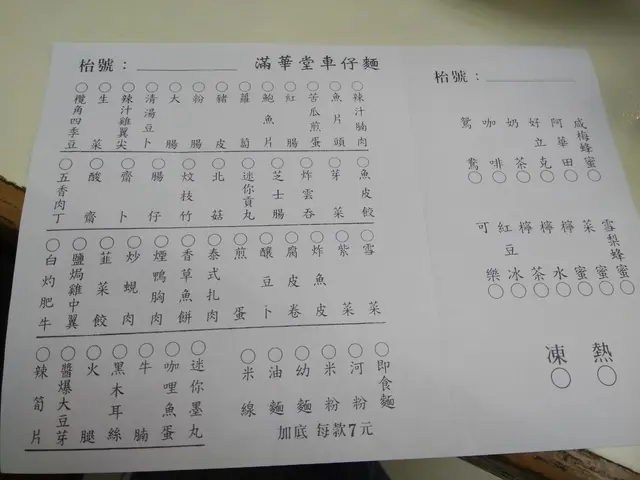 枱號：
滿華堂車仔麵
辣汁腩肉
魚片頭
苦瓜煎蛋
紅腸
鮑魚片
蘿蔔
豬皮
粉腸
大腸
清湯豆卜
辣汁雞翼尖
生菜
欖角四季豆
魚皮餃
芽菜
炸雲吞
芝士腸
迷你貢丸
北菇
炆枝竹
腸仔
齋卜
酸齋
五香肉丁
雪菜
紫菜
炸魚皮
腐皮卷
釀豆卜
煎蛋
泰式扎肉
香草魚餅
煙鴨胸肉
炒蜆肉
韮菜餃
鹽焗雞中翼
白灼肥牛
即食麵
河粉
米粉
幼麵
油麵
米線
迷你墨丸
咖哩魚蛋
牛腩
黑木耳絲
火腿
醬爆大豆芽
辣筍片
加底 每款7元
枱號：
咸梅蜂蜜
阿華田
好立克
奶茶
咖啡
鴛鴦
雪梨蜂蜜
菜蜜
檸蜜
檸水
檸茶
紅豆冰
可樂
熱
凍